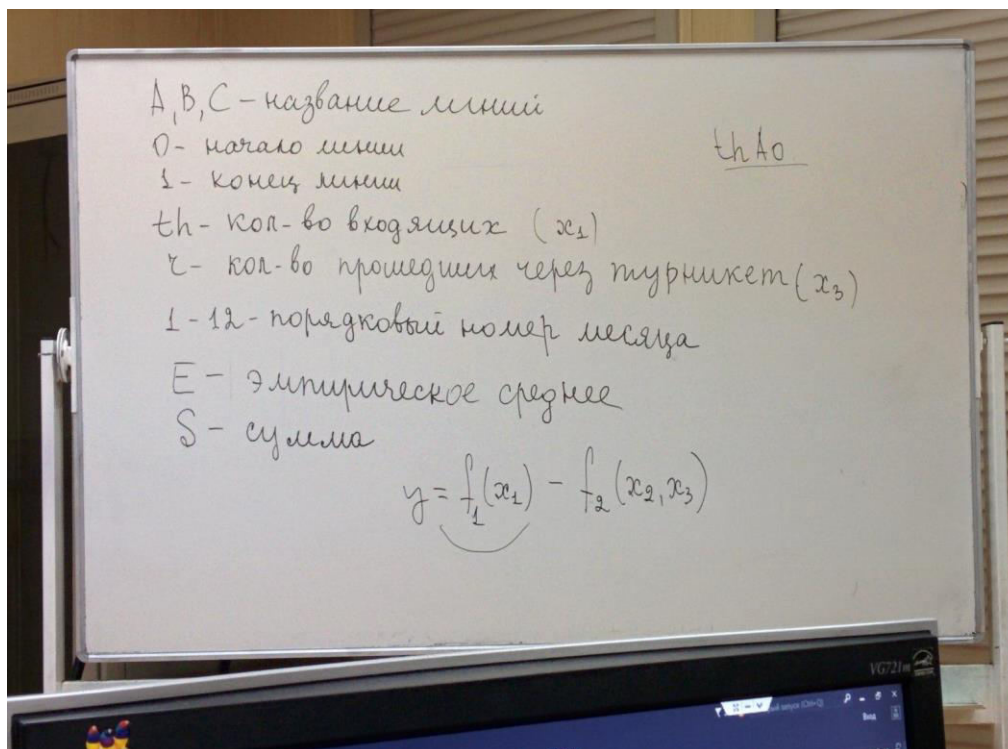 A, B, C – название линий
0 - начало линии
thA0
1 - конец линии
th - кол-во входящих (x₁)
r - кол-во прошедших через турникет (x₃)
1-12 - порядковый номер месяца
E – эмпирическое среднее
S – сумма
y = f₁(x₁) – f₂(x₂, x₃)
VG721m
Вход